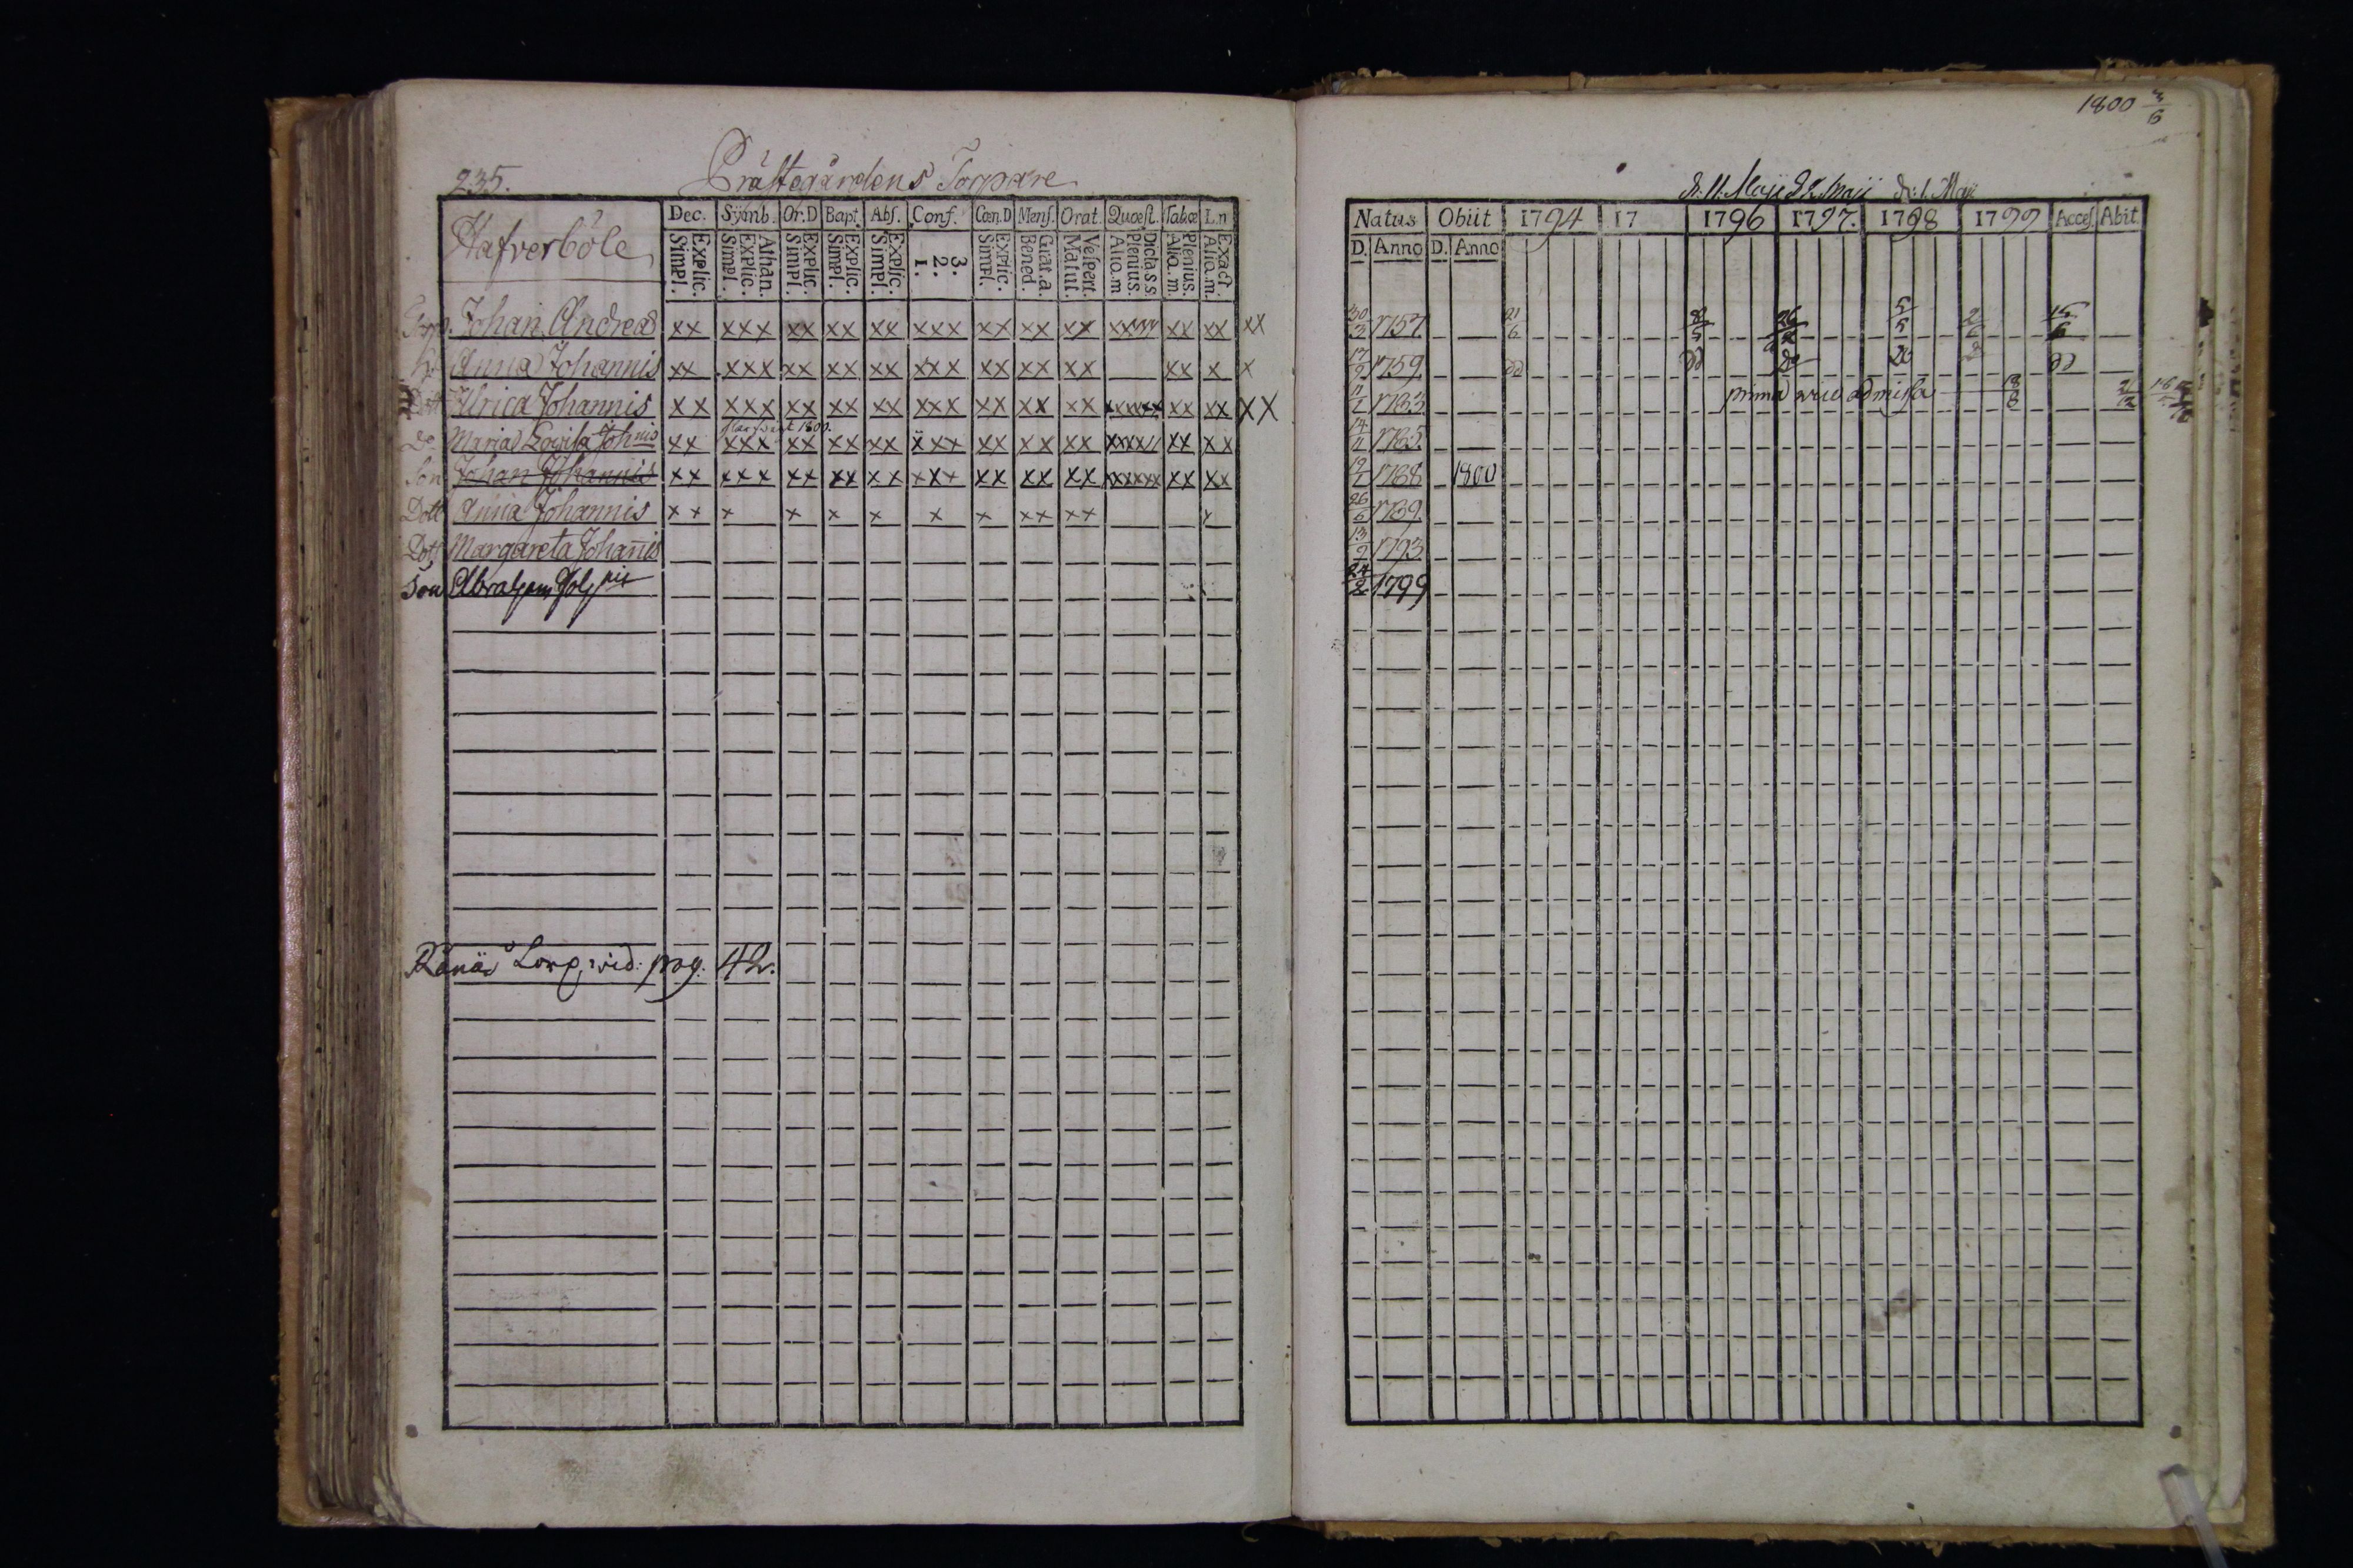 235. Prästegårdens Torpare
Hafverböle
Dec. Symb. Or.D Bapt. Abs. Conf. Cœn.D Mens. Orat. Quæst. Tabœ L.n
Explic. Simpl. Athan. Explic. Simpl. Explic. Simpl. Explic. Simpl. Explic. Simpl. 3. 2. 1. Explic. Simpl. Grat.a. Bened. Vespert. Matut. Dicta s.s. Plenius. Aliq.m Plenius. Aliq.m. Exact. Aliq.m.
Torp. Johan Andreæ xx xxx xx xx xx xxx xx xx xx xx xx xx
Anna Johannis xx xxx xx xx xx xxx xx xx xx xx x x
Ulrica Johannis xx xxx xx xx xx xxx xx xx xx xxxxxx xx xx XX
Do Maria Lovisa Johnis xx xxx xx xx xx xxx xx xx xx xx xx
Son Johan Johannis xx xxx xx xx xx xxx xx xx xx xxxxxx xx xx
Dott Anna Johannis xx x x x x x x xx xx x
Dott Margareta Johañis
Son Abraham Johnis
Torp. vid. pag. 42.
1800 3/6
d. 11. Maji d. 2. Maji d. 1. Maji
Natus Obiit 1794 17 1796 1797. 1798 1799 Acces. Abit.
D. Anno D. Anno
30/3 1757 21/6 8/5 5/5 2/6 15/6
17/2 1759 do do do do do
1783 prima vice admissa 8/6
14/11 1785
19/7 1788 1800
26/6 1789
13/9 1793
24/2 1799